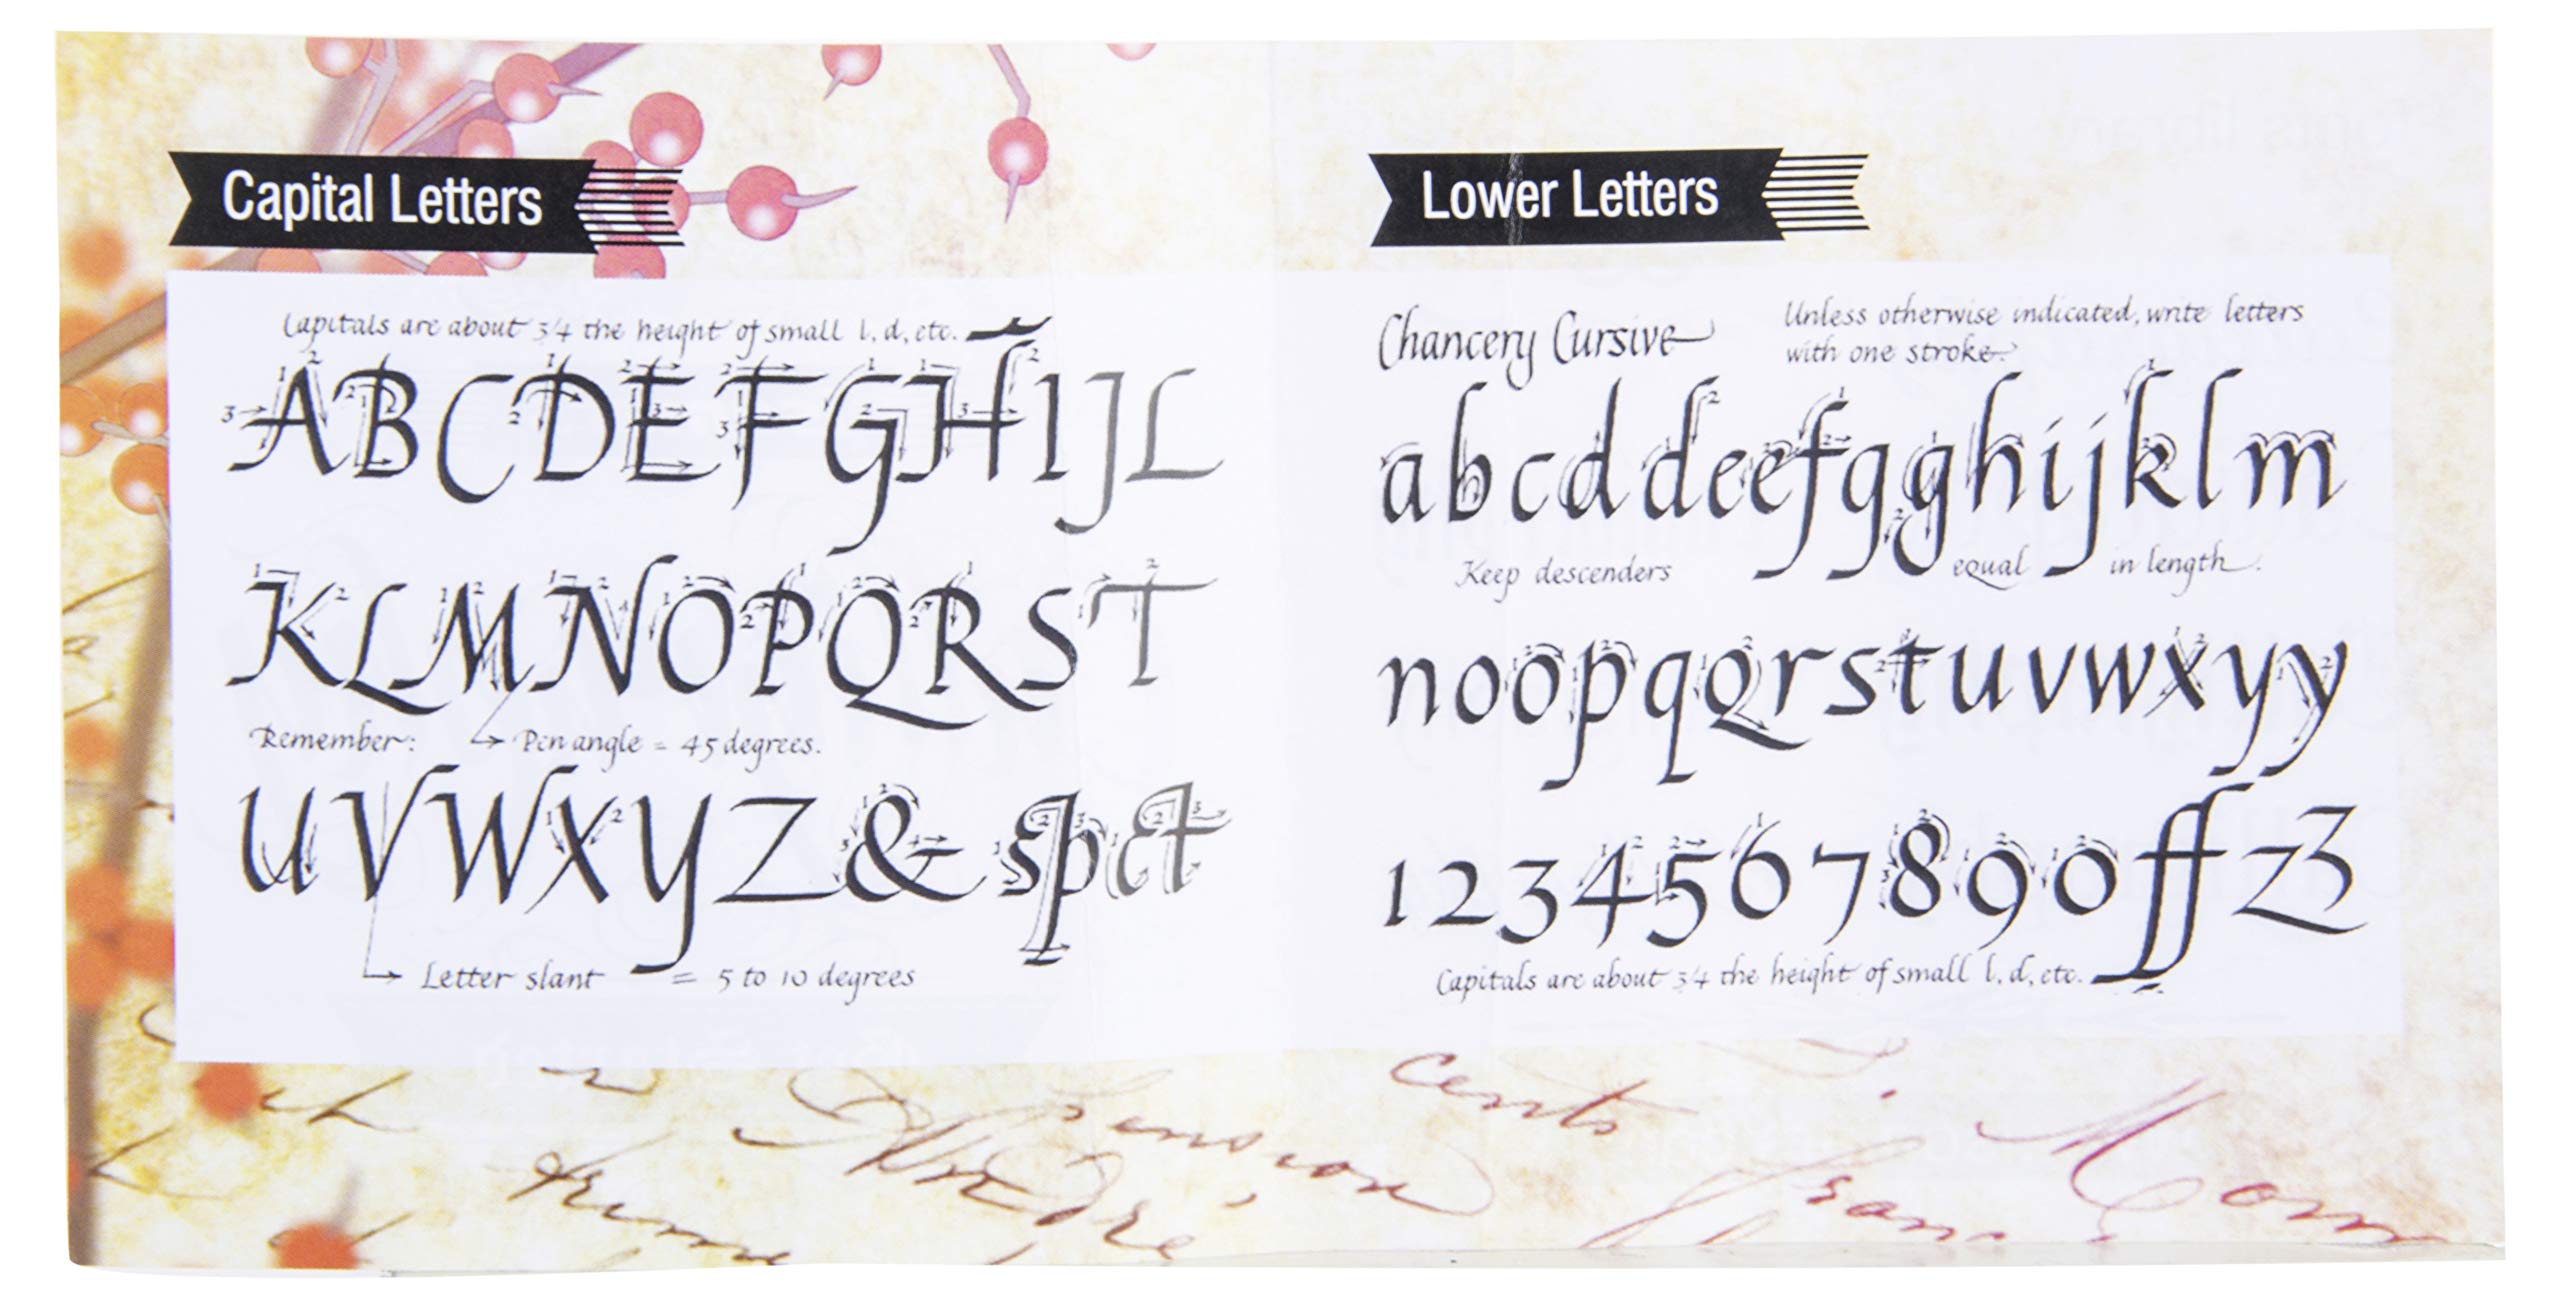 Capital Letters
Capitals are about 3/4 the height of small l, d, etc.
A B C D E F G H I J L
K L M N O P Q R S T
Remember: Pen angle = 45 degrees.
U V W X Y Z & sp ct
Letter slant = 5 to 10 degrees
Lower Letters
Chancery Cursive
Unless otherwise indicated, write letters
with one stroke.
a b c d d e e f g g h i j k l m
Keep descenders equal in length.
n o o p q q r s t u v w x y y
1 2 3 4 5 6 7 8 9 0 ff z z
Capitals are about 3/4 the height of small l, d, etc.
cents